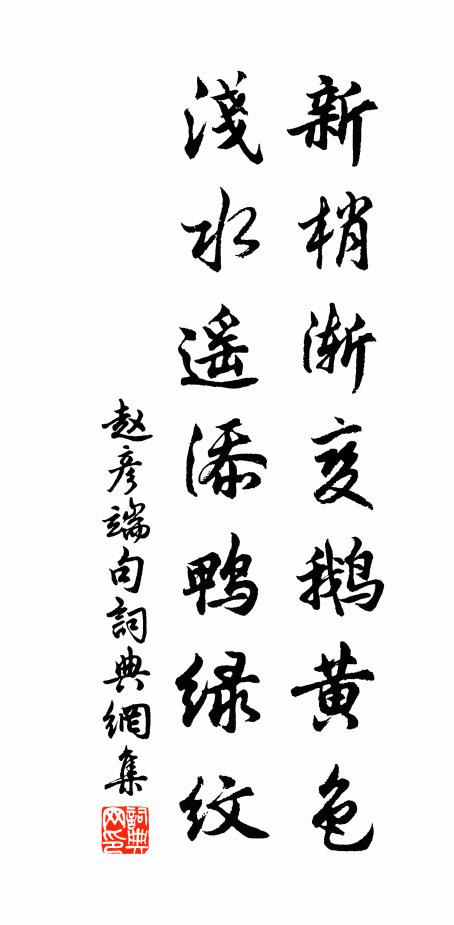 新梢渐变鹅黄色
淺水遥添鸭绿纹
赵彦端句詞典網集
詞典网印